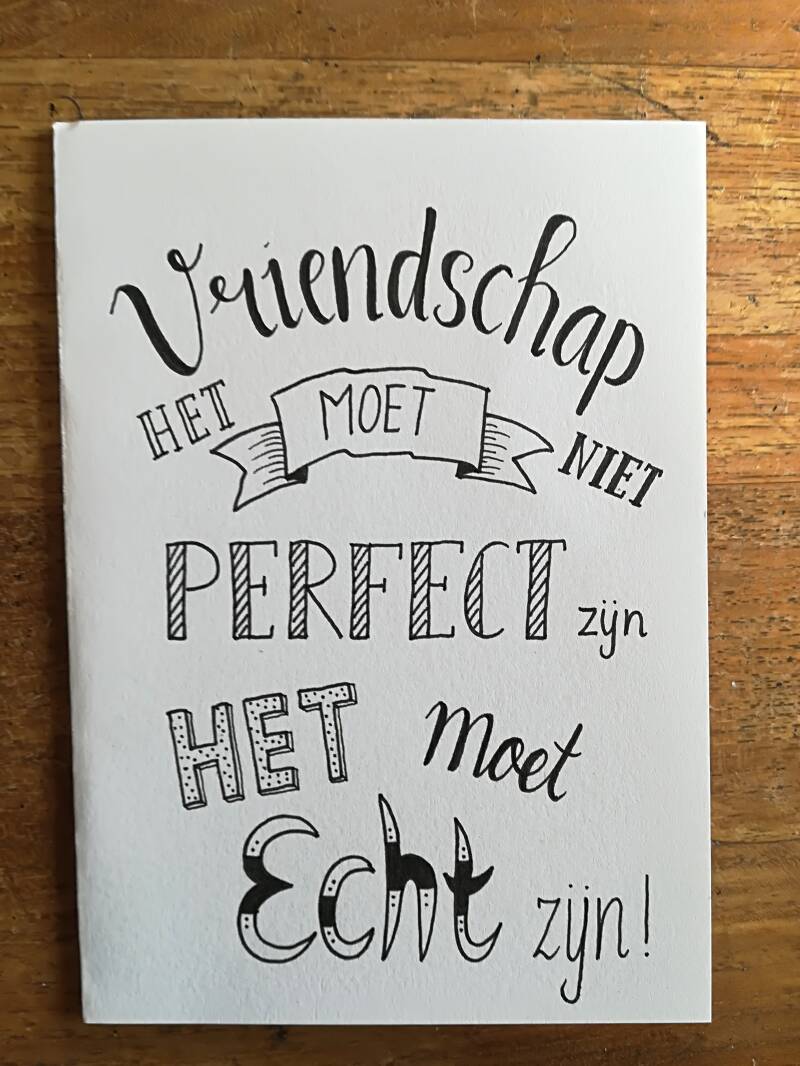 Vriendschap
HET MOET NIET
PERFECT zijn
HET moet
Echt zijn!